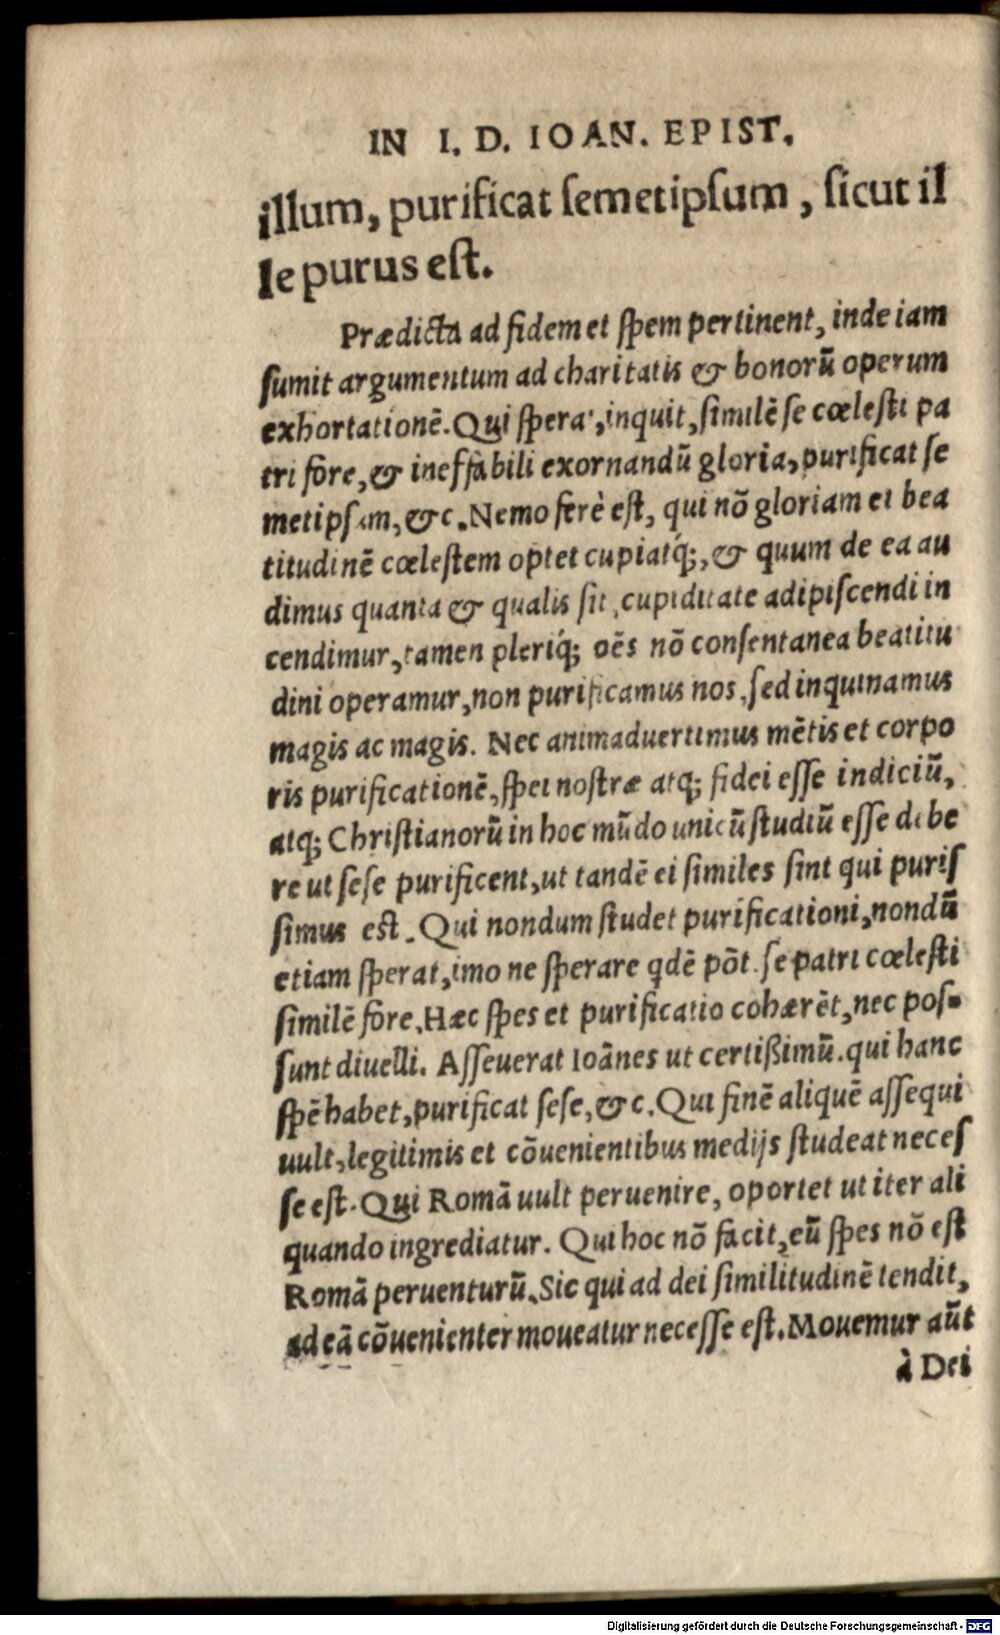 IN I. D. IOAN. EPIST.
illum, purificat ſemetipſum, ſicut il
le purus eſt.
Prædicta ad fidem et ſpem pertinent, inde iam
ſumit argumentum ad charitatis & bonorū operum
exhortationē. Qui ſperat, inquit, ſimilē ſe cœleſti pa
tri fore, & ineffabili exornandū gloria, purificat ſe
metipſum, &c. Nemo ferè eſt, qui nō gloriam et bea
titudinē cœleſtem optet cupiatq́;, & quum de ea au
dimus quanta & qualis ſit, cupiditate adipiſcendi in
cendimur, tamen pleriq́; oēs nō conſentanea beatitu
dini operamur, non purificamus nos, ſed inquinamus
magis ac magis. Nec animaduertimus mētis et corpo
ris purificationē, ſpei noſtræ atq; fidei eſſe indiciū,
atq; Chriſtianorū in hoc mūdo unicū ſtudiū eſſe debe
re ut ſeſe purificent, ut tandē ei ſimiles ſint qui puriſ
ſimus eſt. Qui nondum ſtudet purificationi, nondū
etiam ſperat, imo ne ſperare qdē pōt ſe patri cœleſti
ſimilē fore. Hæc ſpes et purificatio cohærēt, nec poſ-
ſunt diuelli. Aſſeuerat Ioānes ut certißimū. qui hanc
ſpē habet, purificat ſeſe, &c. Qui finē aliquē aſſequi
uult, legitimis et cōuenientibus medijs ſtudeat neceſ
ſe eſt. Qui Romā uult peruenire, oportet ut iter ali
quando ingrediatur. Qui hoc nō facit, eū ſpes nō eſt
Romā peruenturū. Sic qui ad dei ſimilitudinē tendit,
ad eā cōuenienter moueatur neceſſe eſt. Mouemur aūt
à Dei
Digitalisierung gefördert durch die Deutsche Forschungsgemeinschaft - DFG